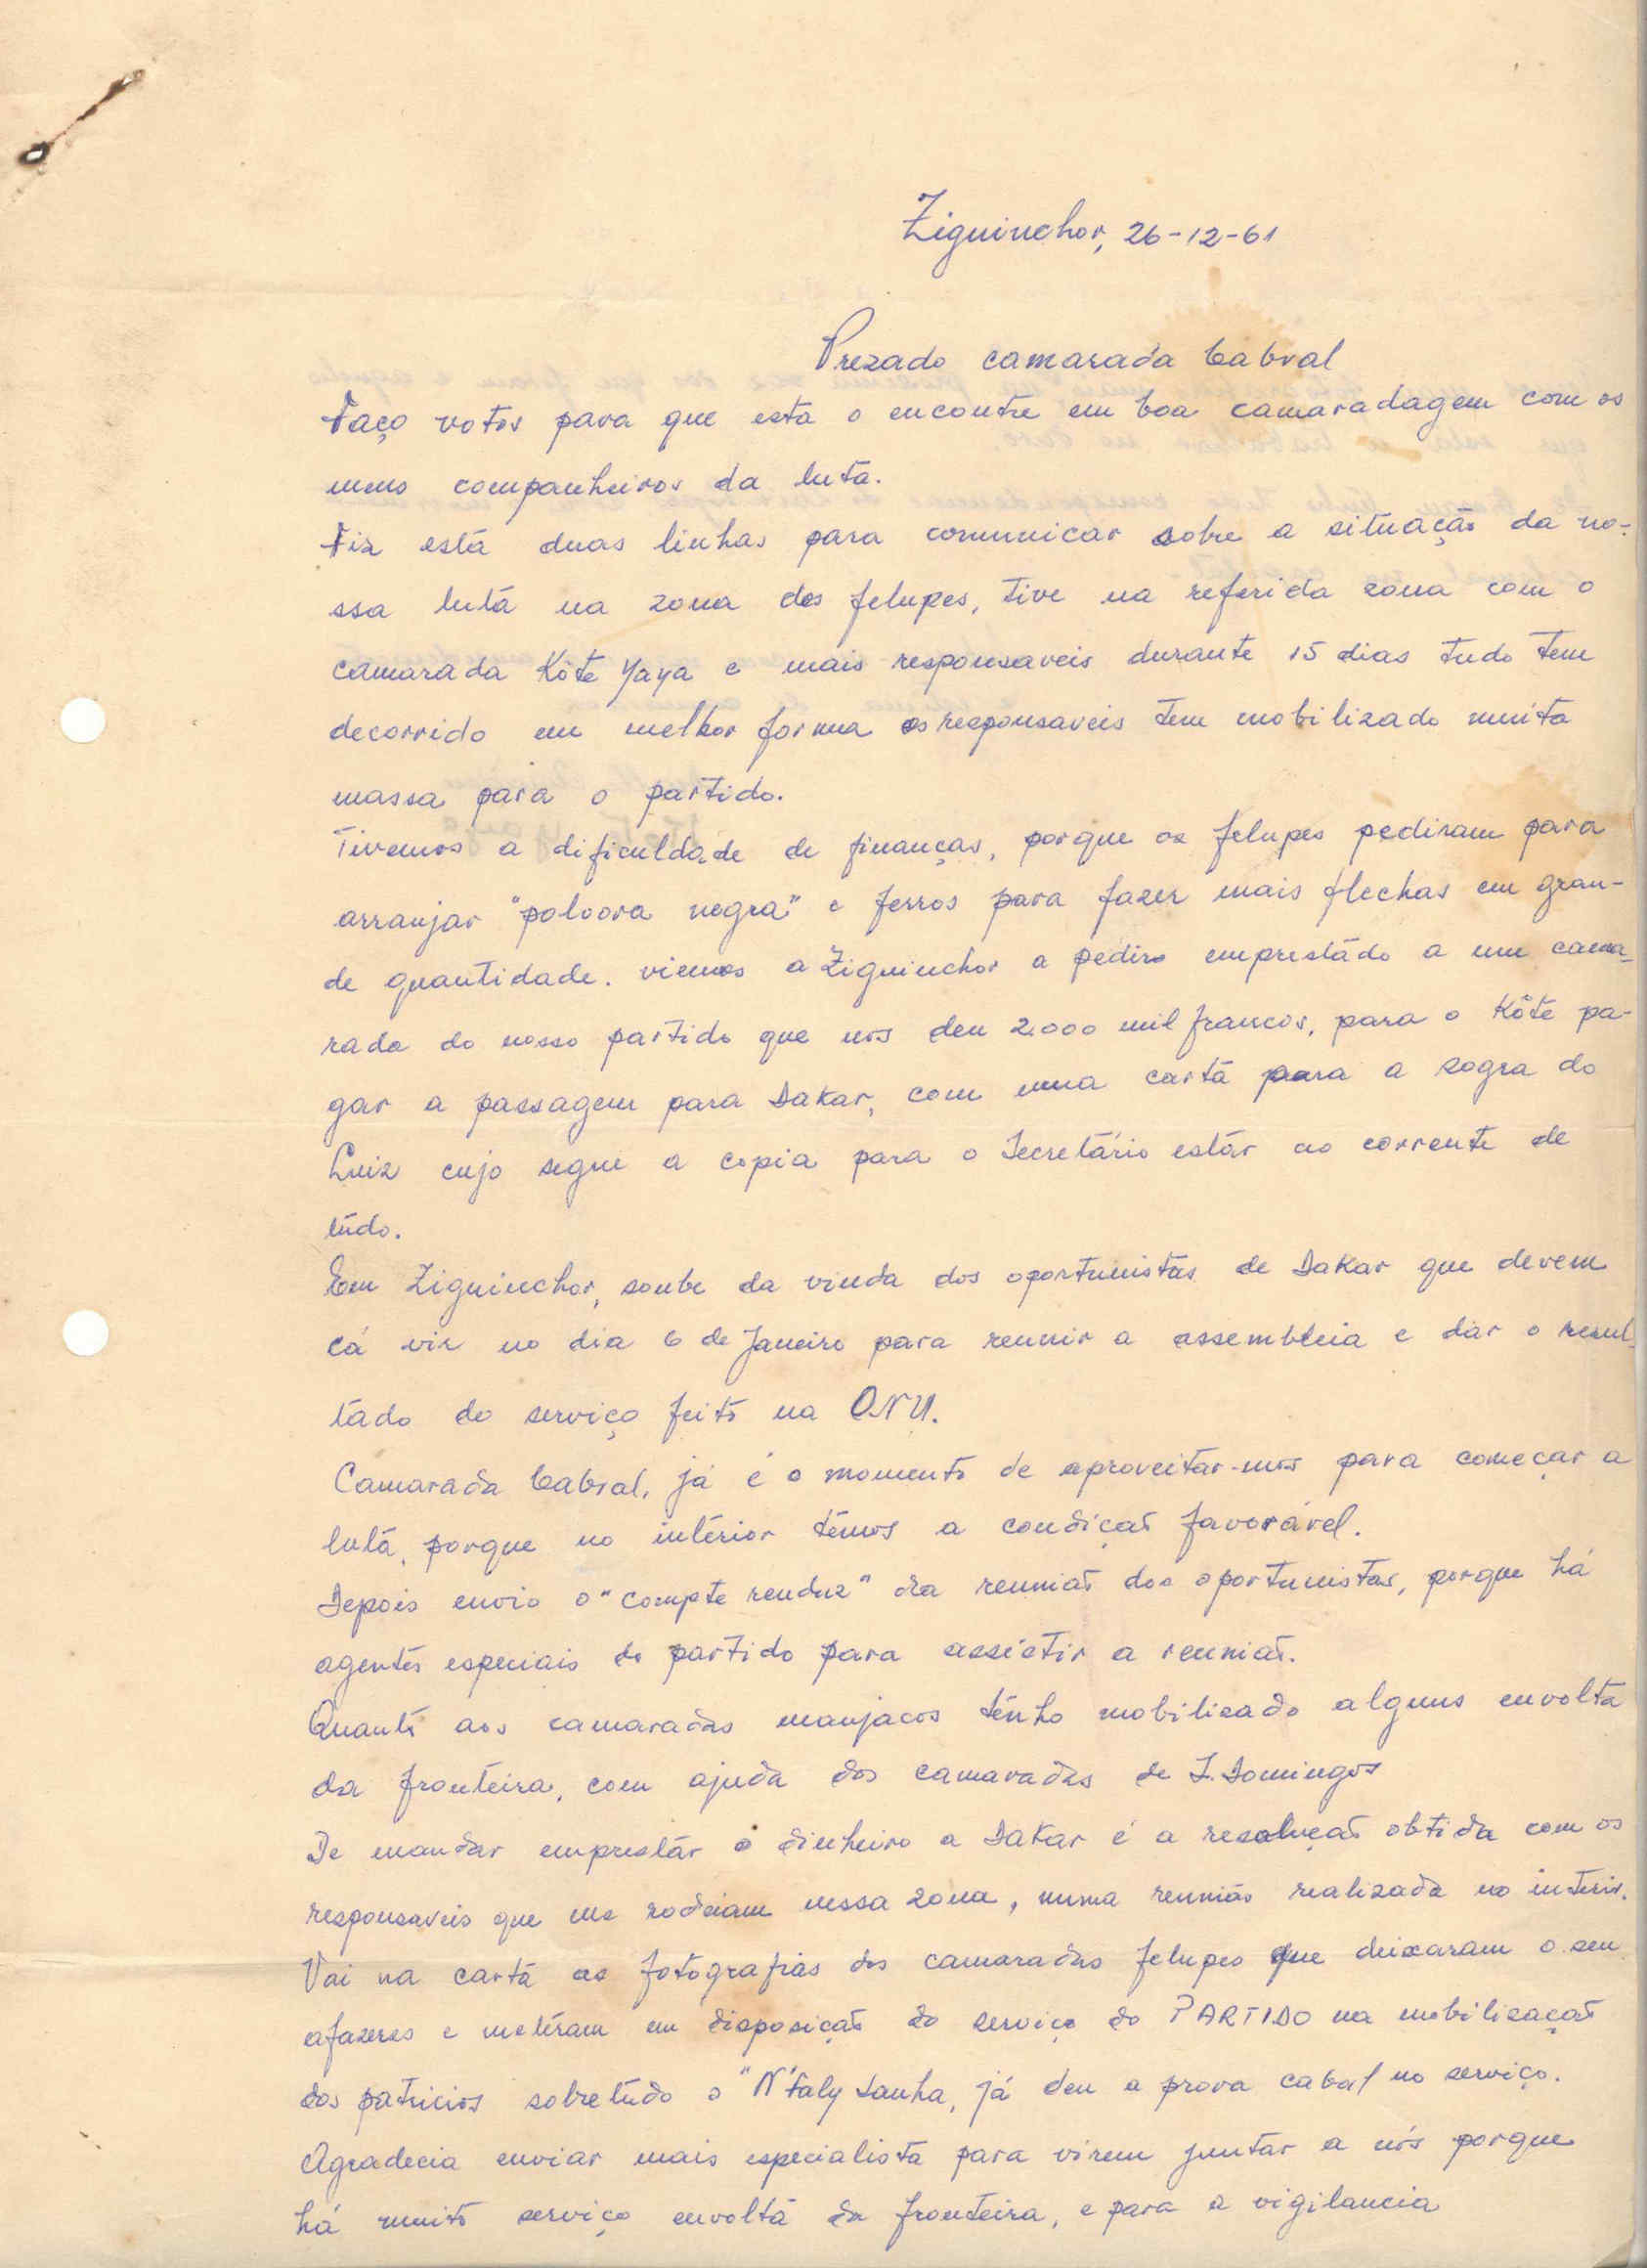 Ziguinchor, 26-12-61
Prezado camarada Cabral
Faço votos para que esta o encontre em boa camaradagem com os
meus companheiros da luta.
Fiz está duas linhas para comunicar sobre a situação da no-
ssa lutá na zona dos felupes, tive na referida zona com o
camarada Kôte Yaya e mais responsaveis durante 15 dias tudo tem
decorrido em melhor forma os responsaveis tem mobilizado muita
massa para o partido.
Tivemos a dificuldade de finanças, porque os felupes pediram para
arranjar "polvora negra" e ferros para fazer mais flechas em gran-
de quantidade. viemos a Ziguinchor a pedir emprestádo a um cama-
rada do nosso partido que nos deu 2.000 mil francos, para o Kôte pa-
gar a passagem para Dakar, com uma cartá para a sogra do
Luiz cujo segue a copia para o Secretário estár ao corrente de
túdo.
Em Ziguinchor, soube da vinda dos oportunistas de Dakar que devem
cá vir no dia 6 de Janeiro para reunir a assembleia e dar o resul-
tádo do serviço feito na ONU.
Camarada Cabral, já é o momento de aproveitar-mos para começar a
lutá, porque no intérior témos a condiçaõ favorável.
Depois envio o "compte renduz" da reuniaõ dos oportunistas, porque há
agentes especiais do partido para assistir a reuniaõ.
Quantó aos camaradas manjacos ténho mobilizado alguns envolta
da fronteira, com ajuda dos camaradas de S. Domingos
De mandar emprestár o dinheiro a Dakar é a resoluçaõ obtida com os
responsaveis que me rodeiam nessa zona, numa reunião realizada no interior.
Vai na cartá as fotografias dos camaradas felupes que deixaram o seu
afazeres e metéram em disposiçaõ do serviço do PARTIDO na mobilizaçaõ
dos patricios sobretúdo o "N'Faly Sanha, já deu a prova cabal no serviço.
Agradecia enviar mais especialista para virem juntar a nós porque
há muito serviço envoltá da fronteira, e para a vigilancia